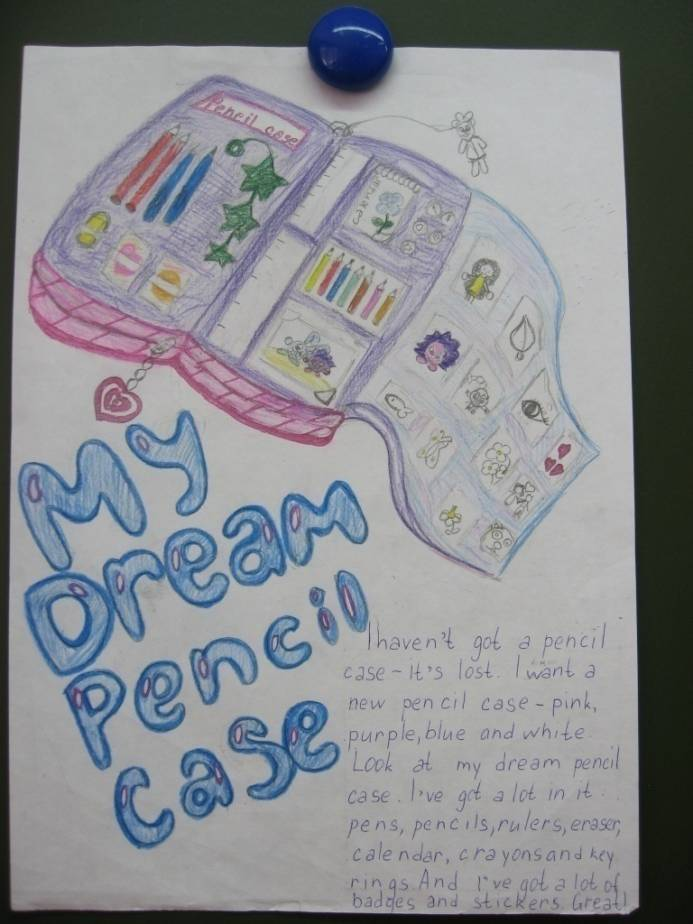 Pencil case
My
Dream
Pencil
Case
I haven't got a pencil
case - it's lost. I want a
new pencil case - pink,
purple, blue and white.
Look at my dream pencil
case. I've got a lot in it:
pens, pencils, rulers, eraser,
calendar, crayons and key
rings. And I've got a lot of
badges and stickers. Great!